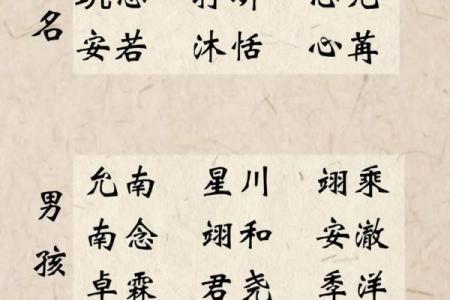 名
安若 沐恬 心苒
男孩
允南 星川 翊乘
南念 翊和 安澈
卓霖 君尧 季洋